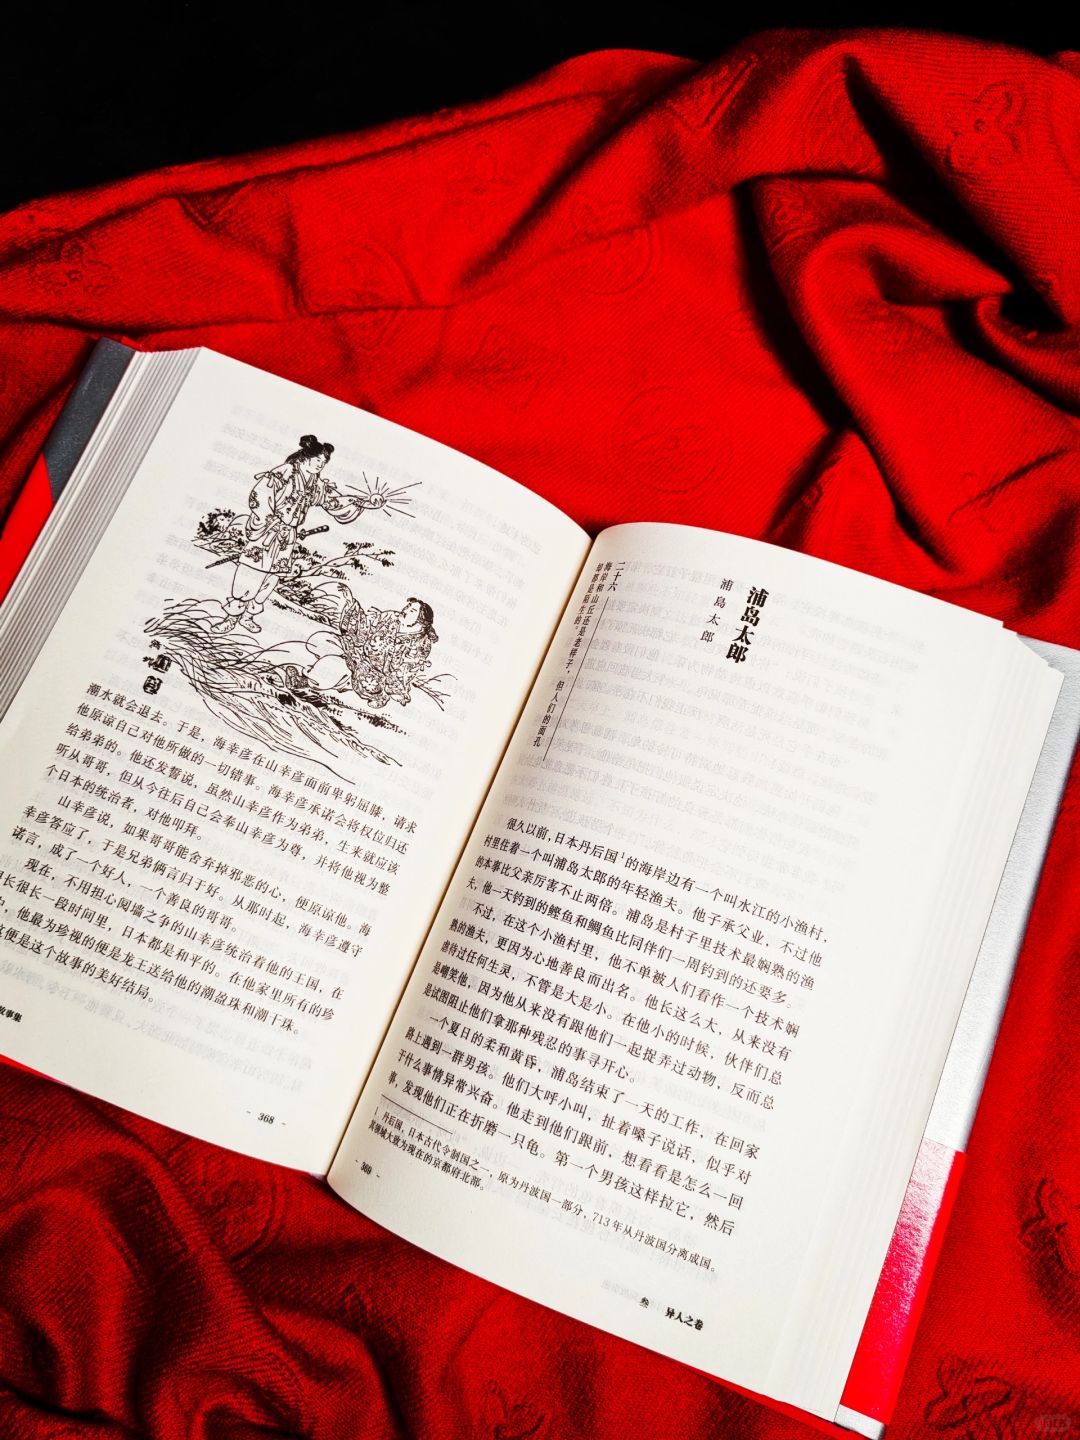 潮水就会退去。于是，海幸彦在山幸彦面前卑躬屈膝，请求
他原谅自己对他所做的一切错事。海幸彦承诺会将权位归还
给弟弟的。他还发誓说，虽然山幸彦作为弟弟，生来就应该
听从哥哥，但从今往后自己会奉山幸彦为尊，并将他视为整
个日本的统治者，对他叩拜。
山幸彦说，如果哥哥能舍弃掉邪恶的心，便原谅他。海
幸彦答应了，于是兄弟俩言归于好。从那时起，海幸彦遵守
诺言，成了一个好人，一个善良的哥哥。
现在，不用担心阋墙之争的山幸彦统治着他的王国，在
很长一段时间里，日本都是和平的。在他家里所有的珍
，他最为珍视的便是龙王送给他的潮盈珠和潮干珠。
这便是这个故事的美好结局。
故事集
- 368 -
二十六
海岸和山丘还是老样子，但人们的面孔
却都是陌生的。
浦岛太郎
浦岛太郎
很久以前，日本丹后国1的海岸边有一个叫水江的小渔村，
村里住着一个叫浦岛太郎的年轻渔夫。他子承父业，不过他
的本事比父亲厉害不止两倍。浦岛是村子里技术最娴熟的渔
夫，他一天钓到的鲣鱼和鲷鱼比同伴们一周钓到的还要多。
不过，在这个小渔村里，他不单被人们看作一个技术娴
熟的渔夫，更因为心地善良而出名。他长这么大，从来没有
虐待过任何生灵，不管是大是小。在他小的时候，伙伴们总
是嘲笑他，因为他从来没有跟他们一起捉弄过动物，反而总
是试图阻止他们拿那种残忍的事寻开心。
一个夏日的柔和黄昏，浦岛结束了一天的工作，在回家
路上遇到一群男孩。他们大呼小叫，扯着嗓子说话，似乎对
于什么事情异常兴奋。他走到他们跟前，想看看是怎么一回
事，发现他们正在折磨一只龟。第一个男孩这样拉它，然后
1 丹后国，日本古代令制国之一，原为丹波国一部分，713年从丹波国分离成国。
其领域大致为现在的京都府北部。
- 369 -
叁 异人之卷